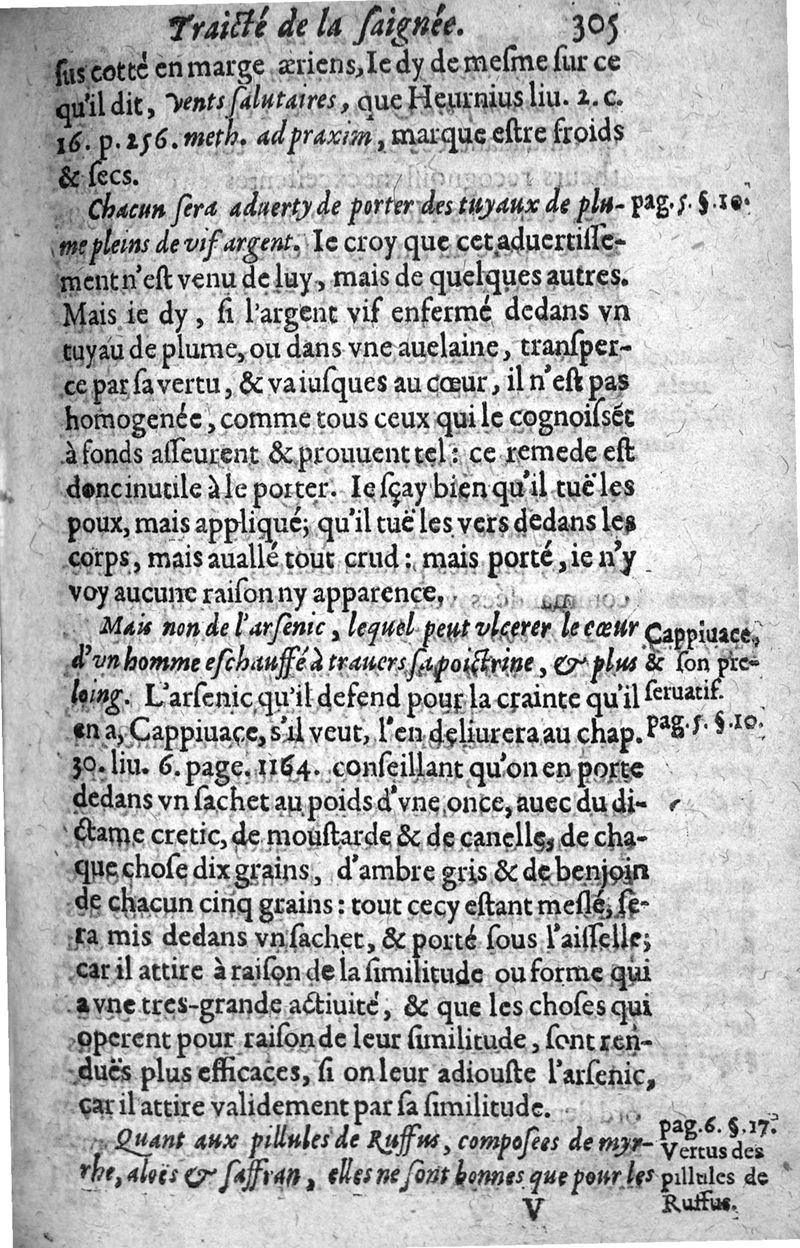 Traicté de la ſaignée. 305
ſus cotté en marge æriens, Ie dy de meſme ſur ce
qu'il dit, vents ſalutaires, que Heurnius liu. 2. c.
16. p. 256. meth. ad praxim, marque eſtre froids
& ſecs.
Chacun ſera aduerty de porter des tuyaux de plu- pag. 5. §. 10.
me pleins de vif argent. Ie croy que cet aduertiſſe-
ment n'eſt venu de luy, mais de quelques autres.
Mais ie dy, ſi l'argent vif enfermé dedans vn
tuyau de plume, ou dans vne auelaine, tranſper-
ce par ſa vertu, & va iuſques au cœur, il n'eſt pas
homogenée, comme tous ceux qui le cognoiſsẽt
à fonds aſſeurent & prouuent tel: ce remede eſt
donc inutile à le porter. Ie ſçay bien qu'il tuë les
poux, mais appliqué; qu'il tuë les vers dedans les
corps, mais auallé tout crud: mais porté, ie n'y
voy aucune raiſon ny apparence.
Mais non de l'arſenic, lequel peut vlcerer le cœur Cappiuace,
d'vn homme eſchauffé à trauers ſa poictrine, & plus & ſon pre-
loing. L'arſenic qu'il defend pour la crainte qu'il ſeruatif.
en a, Cappiuace, s'il veut, l'en deliurera au chap. pag. 5. §. 10.
30. liu. 6. page. 1164. conſeillant qu'on en porte
dedans vn ſachet au poids d'vne once, auec du di-
ctame cretic, de mouſtarde & de canelle, de cha-
que choſe dix grains, d'ambre gris & de benjoin
de chacun cinq grains: tout cecy eſtant meſlé, ſe-
ra mis dedans vn ſachet, & porté ſous l'aiſſelle;
car il attire à raiſon de la ſimilitude ou forme qui
a vne tres-grande actiuité, & que les choſes qui
operent pour raiſon de leur ſimilitude, ſont ren-
duës plus efficaces, ſi on leur adiouſte l'arſenic,
car il attire validement par ſa ſimilitude.
Quant aux pillules de Ruffus, compoſées de myr- pag. 6. §. 17.
rhe, aloës & ſaffran, elles ne ſont bonnes que pour les Vertus des
pillules de
V Ruffus.